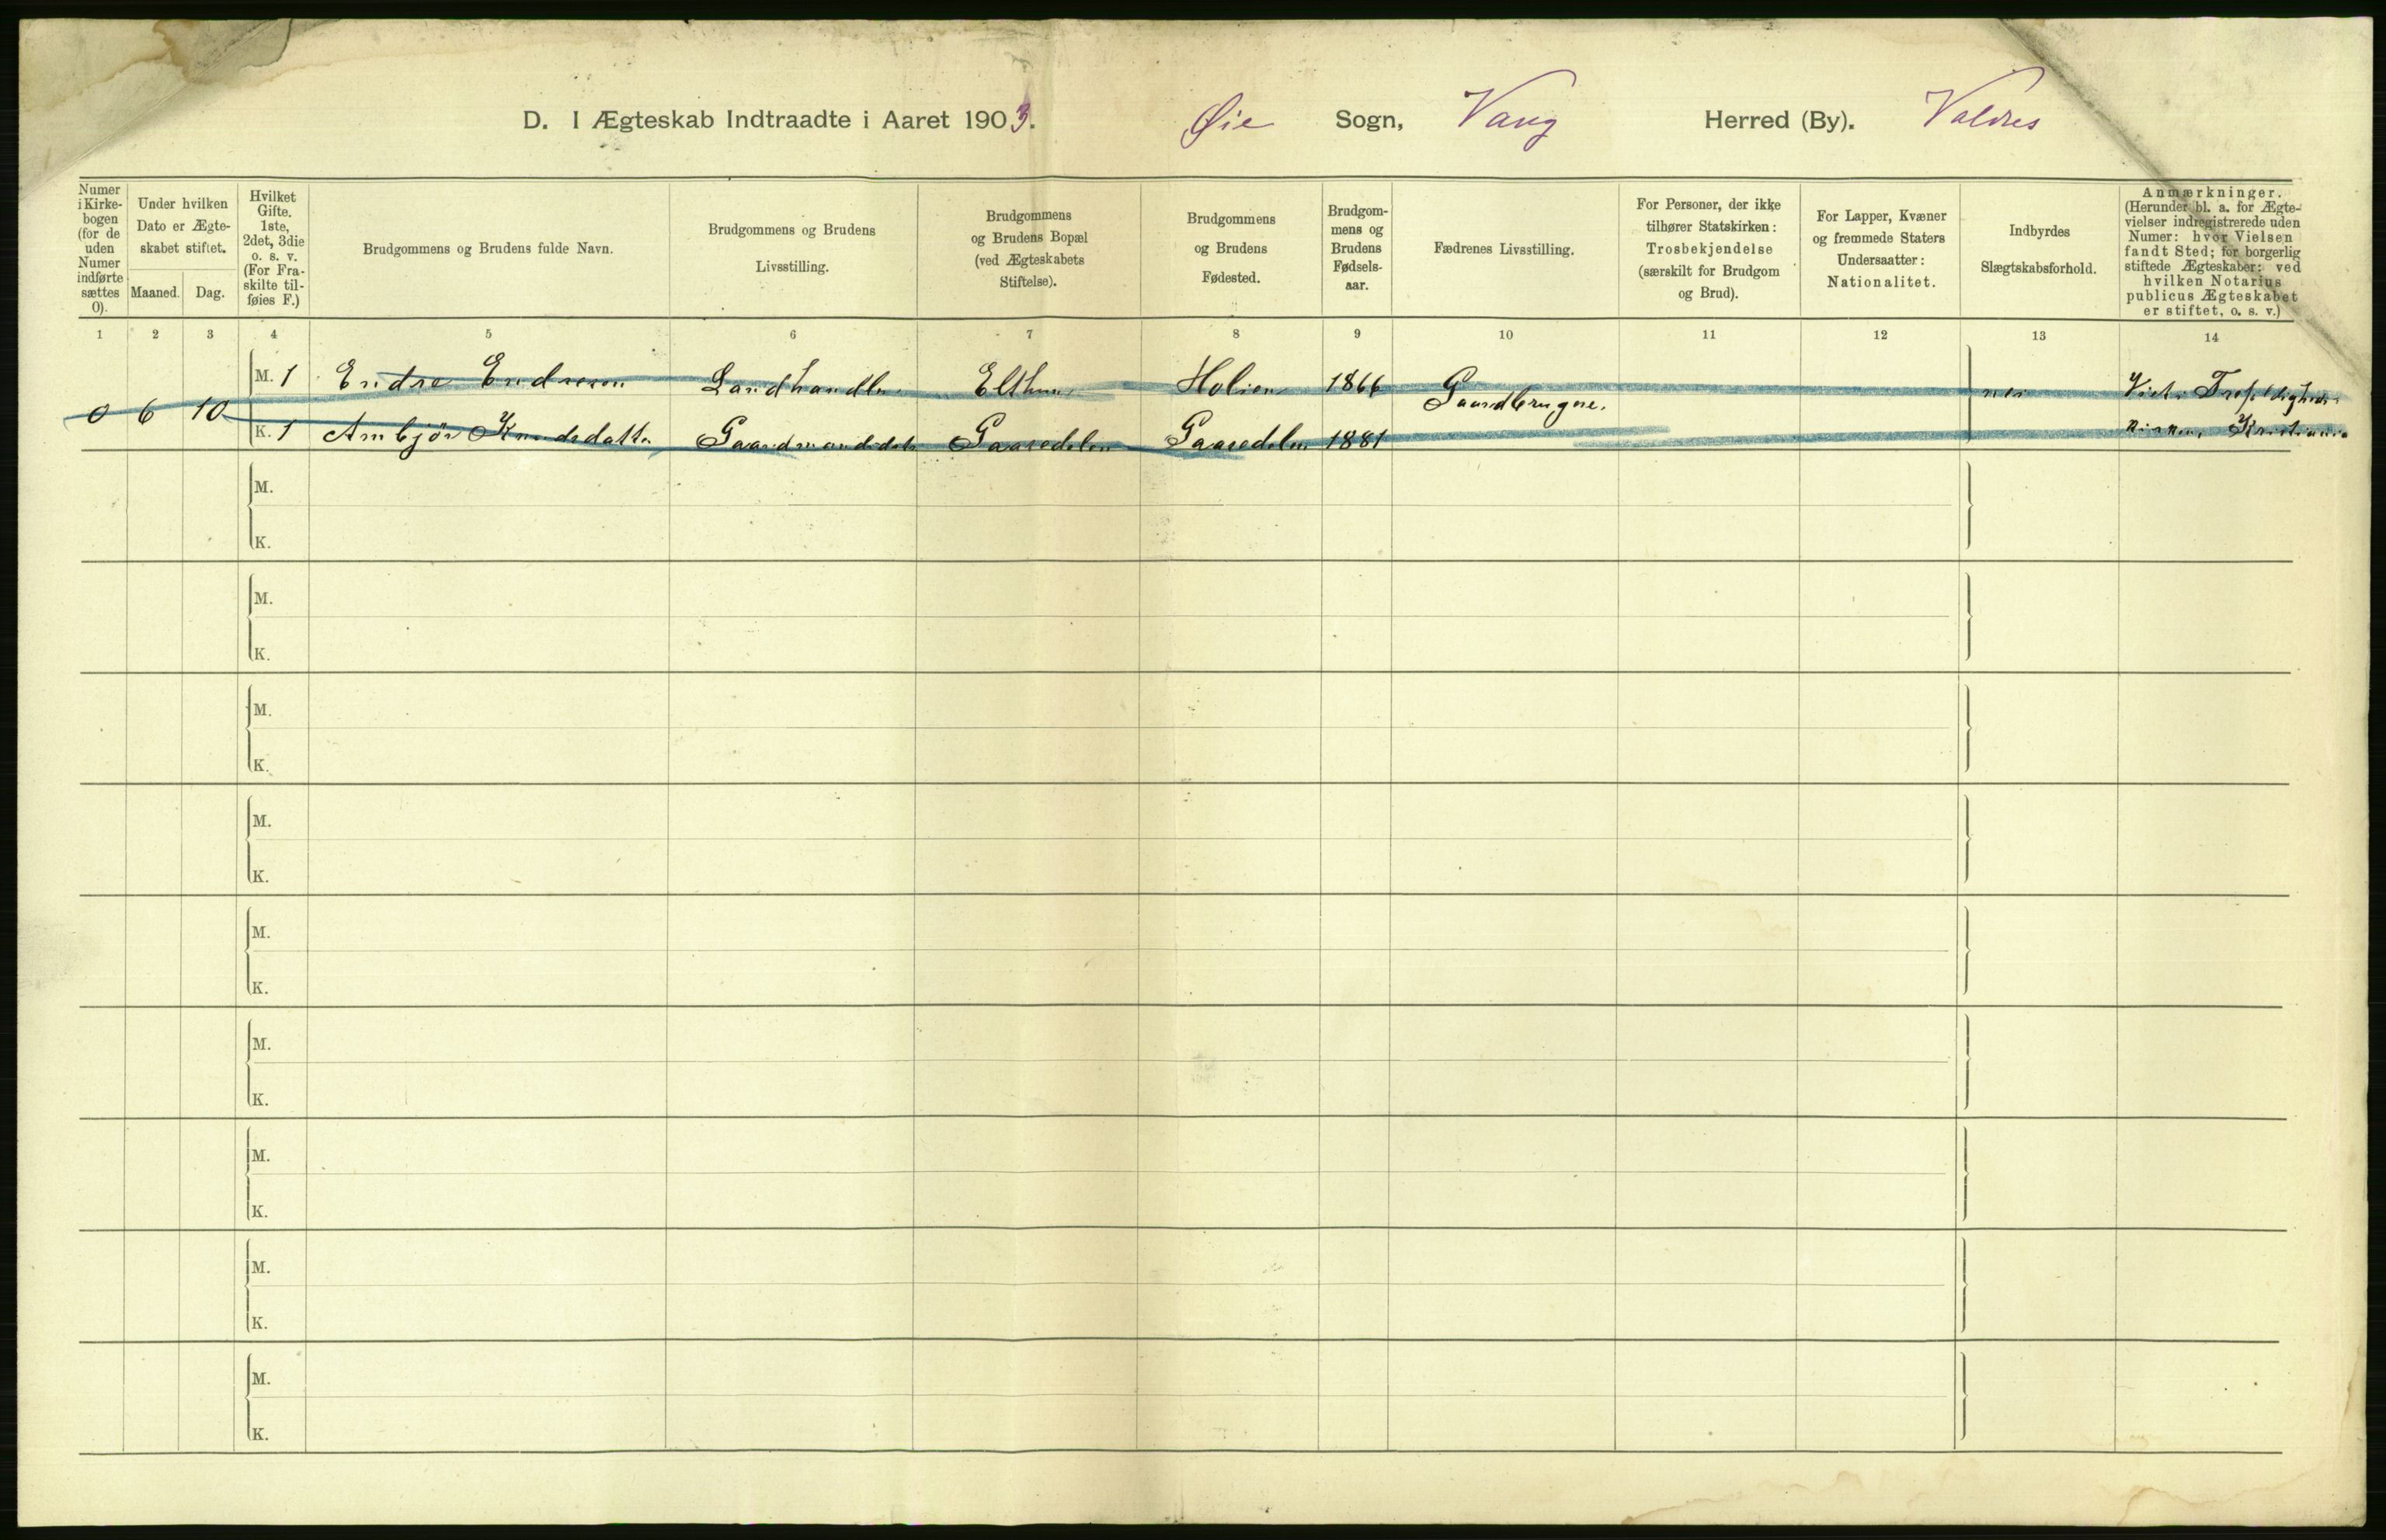 D. I Ægteskab Indtraadte i Aaret 1903. Øie Sogn, Vang Herred (By). Valdres
Numer i Kirkebogen (for de uden Numer indførte sættes 0).
Under hvilken Dato er Ægteskabet stiftet.
Maaned. Dag.
Hvilket Gifte. 1ste, 2det, 3die o. s. v. (For Fraskilte tilføies F.)
Brudgommens og Brudens fulde Navn.
Brudgommens og Brudens Livsstilling.
Brudgommens og Brudens Bopæl (ved Ægteskabets Stiftelse).
Brudgommens og Brudens Fødested.
Brudgommens og Brudens Fødselsaar.
Fædrenes Livsstilling.
For Personer, der ikke tilhører Statskirken: Trosbekjendelse (særskilt for Brudgom og Brud).
For Lapper, Kvæner og fremmede Staters Undersaatter: Nationalitet.
Indbyrdes Slægtskabsforhold.
Anmærkninger. (Herunder bl. a. for Ægtevielser indregistrerede uden Numer: hvor Vielsen fandt Sted; for borgerlig stiftede Ægteskaber: ved hvilken Notarius publicus Ægteskabet er stiftet, o. s. v.)
1 2 3 4 5 6 7 8 9 10 11 12 13 14
M. 1 Endre Endresen Landhandler Elthun Holien 1866 Gaardbrugere. nei Viet i Trefoldigheds
0 6 10
K. 1 Ambjør Knudsdatter Gaardmandsdatter Gaasedelen Gaasedelen 1881 kirken, Kristiania
M.
K.
M.
K.
M.
K.
M.
K.
M.
K.
M.
K.
M.
K.
M.
K.
M.
K.